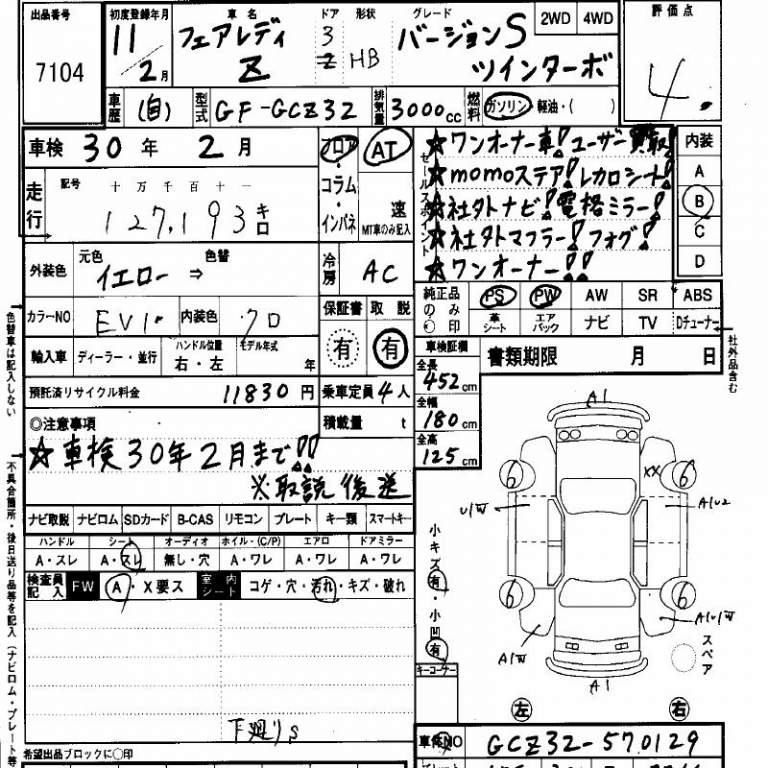 出品番号 初度登録年月 車名 ドア 形状 グレード 2WD 4WD 評価点
7104 11/2月 フェアレディZ 3 HB バージョンS ツインターボ 4.
車歴 (自) 型式 GF-GCZ32 排気量 3000cc 燃料 ガソリン 軽油・( )
車検 30年 2月 フロア AT
コラム・インパネ 速 MT車のみ記入
走行 記号 十万千百十一
127,193キロ
セールスポイント
☆ワンオーナー車!ユーザー買取!
☆momoステア!レカロシート!
☆社外ナビ!電格ミラー!
☆社外マフラー!フォグ!
☆ワンオーナー!!
内装
A
B
C
D
外装色 元色 イエロー ⇒ 色替 冷房 AC
カラーNO EV1 内装色 クロ 保証書 有 取説 有
純正品のみ○印 PS PW AW SR ABS
革シート エアバック ナビ TV Dチューナー
社外品含む
輸入車 ディーラー・並行 ハンドル位置 右・左 モデル年式 年
車検証欄 書類期限 月 日
預託済リサイクル料金 11830円 乗車定員 4人
積載量 t
全長 452cm
全幅 180cm
全高 125cm
◎注意事項
☆車検30年2月まで!!
※取説後送
色替車は記入しない
不具合箇所・後日送り品等を記入(ナビロム・プレート等
ナビ取説 ナビロム SDカード B-CAS リモコン プレート キー類 スマートキー
ハンドル シート オーディオ ホイル・(C/P) エアロ ドアミラー
A・スレ A・スレ 無し・穴 A・ワレ A・ワレ A・ワレ
検査員記入 FW A・X要ス 室内シート コゲ・穴・汚れ・キズ・破れ
下廻りS
希望出品ブロックに○印
小キズ有・小凹有
キーコーナー
A1
6 XX 6
A1U2
6 6
スペア
A1
左 右
車台NO GCZ32-570129